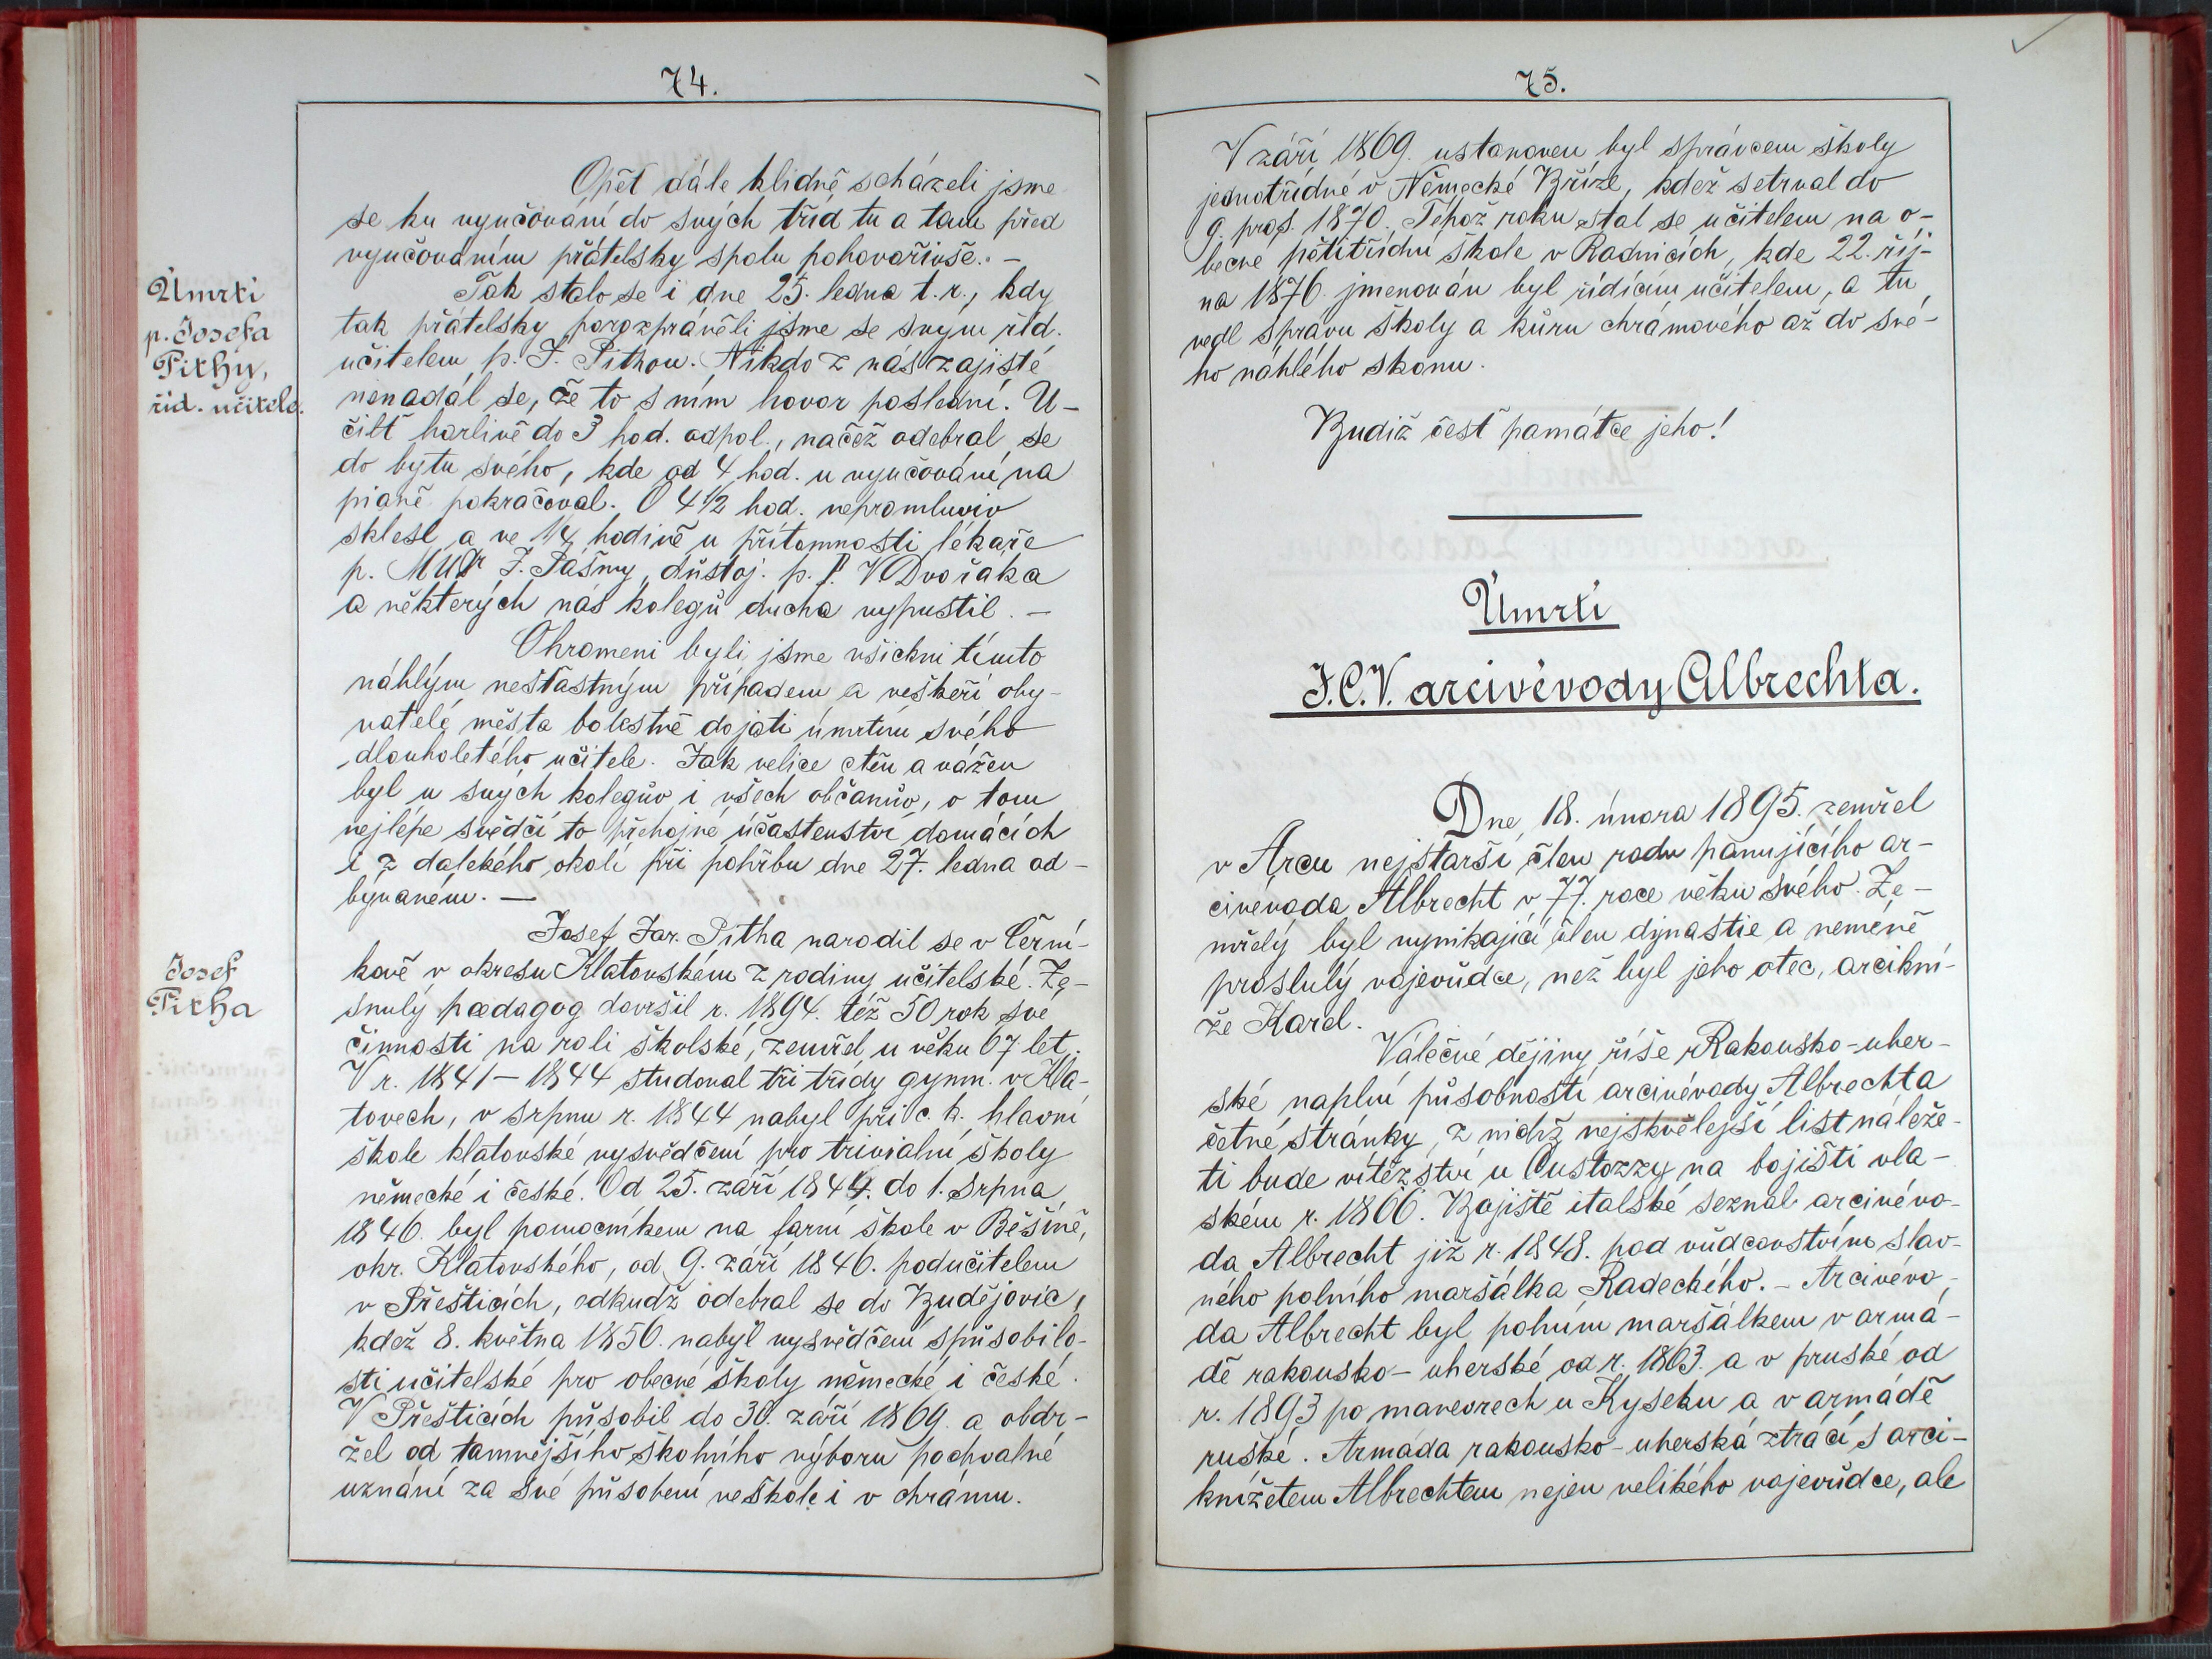 74.
Opět dále klidně scházeli jsme
se ku vyučování do svých tříd tu a tam před
vyučováním přátelsky spolu pohovořivše. —
Úmrtí
p. Josefa
Pithy,
říd. učitele.
Tak stalo se i dne 25. ledna t. r., kdy
tak přátelsky porozprávěli jsme se svým říd.
učitelem p. J. Pithou. Nikdo z nás zajisté
nenadál se, že to s ním hovor poslední. U-
čilť horlivě do 3 hod. odpol., načež odebral se
do bytu svého, kde od 4 hod. u vyučování na
pianě pokračoval. O 4 1/2 hod. nepromluviv
sklesl a ve 1/4 hodině u přítomnosti lékaře
p. MUDr J. Pášmy, důstoj. p. P. V. Dvořáka
a některých nás kolegů ducha vypustil. —
Ohromeni byli jsme všickni tímto
náhlým nešťastným případem a veškeří oby-
vatelé města bolestně dojati úmrtím svého
dlouholetého učitele. Jak velice ctěn a vážen
byl u svých kolegův i všech občanův, o tom
nejlépe svědčí to přehojné účastenství domácích
i z dalekého okolí při pohřbu dne 27. ledna od-
bývaném. —
Josef
Pitha
Josef Jar. Pitha narodil se v Černí-
kově v okresu Klatovském z rodiny učitelské. Ze-
snulý pædagog dovršil r. 1894. též 50 rok své
činnosti na roli školské, zemřel u věku 67 let.
V r. 1841 – 1844 studoval tři třídy gymn. v Kla-
tovech, v srpnu r. 1844 nabyl při c. k. hlavní
škole klatovské vysvědčení pro triviální školy
německé i české. Od 25. září 1844. do 1. srpna
1846. byl pomocníkem na farní škole v Běšině,
okr. Klatovského, od 9. září 1846. podučitelem
v Přešticích, odkudž odebral se do Budějovic,
kdež 8. května 1850. nabyl vysvědčení spůsobilo-
sti učitelské pro obecné školy německé i české.
V Přešticích působil do 30. září 1869. a obdr-
žel od tamnějšího školního výboru pochvalné
uznání za své působení ve škole i v chrámu.
75.
V září 1869. ustanoven byl správcem školy
jednotřídné v Německé Bříze, kdež setrval do
9. pros. 1870. Téhož roku stal se učitelem na o-
becné pětitřídní škole v Radnicích, kde 22. říj-
na 1876. jmenován byl řídícím učitelem, a tu
vedl správu školy a kůru chrámového až do své-
ho náhlého skonu.
Budiž čest památce jeho!
Úmrtí
J.C.V. arcivévody Albrechta.
Dne 18. února 1895. zemřel
v Arcu nejstarší člen rodu panujícího ar-
civévoda Albrecht v 77. roce věku svého. Ze-
mřelý byl vynikající člen dynastie a neméně
proslulý vojevůdce, než byl jeho otec, arcikní-
že Karel.
Válečné dějiny říše Rakousko-uher-
ské naplní působností arcivévody Albrechta
četné stránky, z nichž nejskvělejší list náleže-
ti bude vítězství u Custozzy na bojišti vla-
ském r. 1866. Bojiště italské seznal arcivévo-
da Albrecht již r. 1848. pod vůdcovstvím slav-
ného polního maršálka Radeckého. – Arcivévo-
da Albrecht byl polním maršálkem v armá-
dě rakousko-uherské od r. 1863. a v pruské od
r. 1893 po manevrech u Kyseku a v armádě
ruské. Armáda rakousko-uherská ztrácí s arci-
knížetem Albrechtem nejen velikého vojevůdce, ale